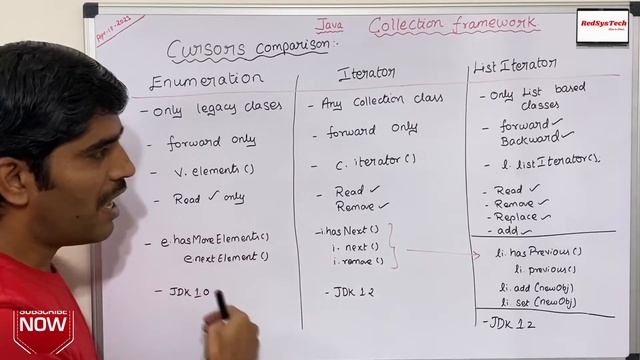 Apr-11-2023
Java Collection framework
RedSysTech
Cursors comparison:-
Enumeration
- Only legacy clases
- forward only
- v.elements()
- Read ✓ only
- e.hasMoreElements()
e.nextElement()
- JDK 1.0
Iterator
- Any Collection class
- forward Only
- c.iterator()
- Read ✓
Remove ✓
- i.hasNext()
i.next()
i.remove()
- JDK 1.2
List Iterator
- Only List based
classes
- forward ✓
Backward ✓
- l.listIterator()
- Read ✓
- Remove ✓
- Replace ✓
- add ✓
li.hasPrevious()
li.previous()
li.add(newObj)
li.set(newObj)
- JDK 1.2
SUBSCRIBE
NOW